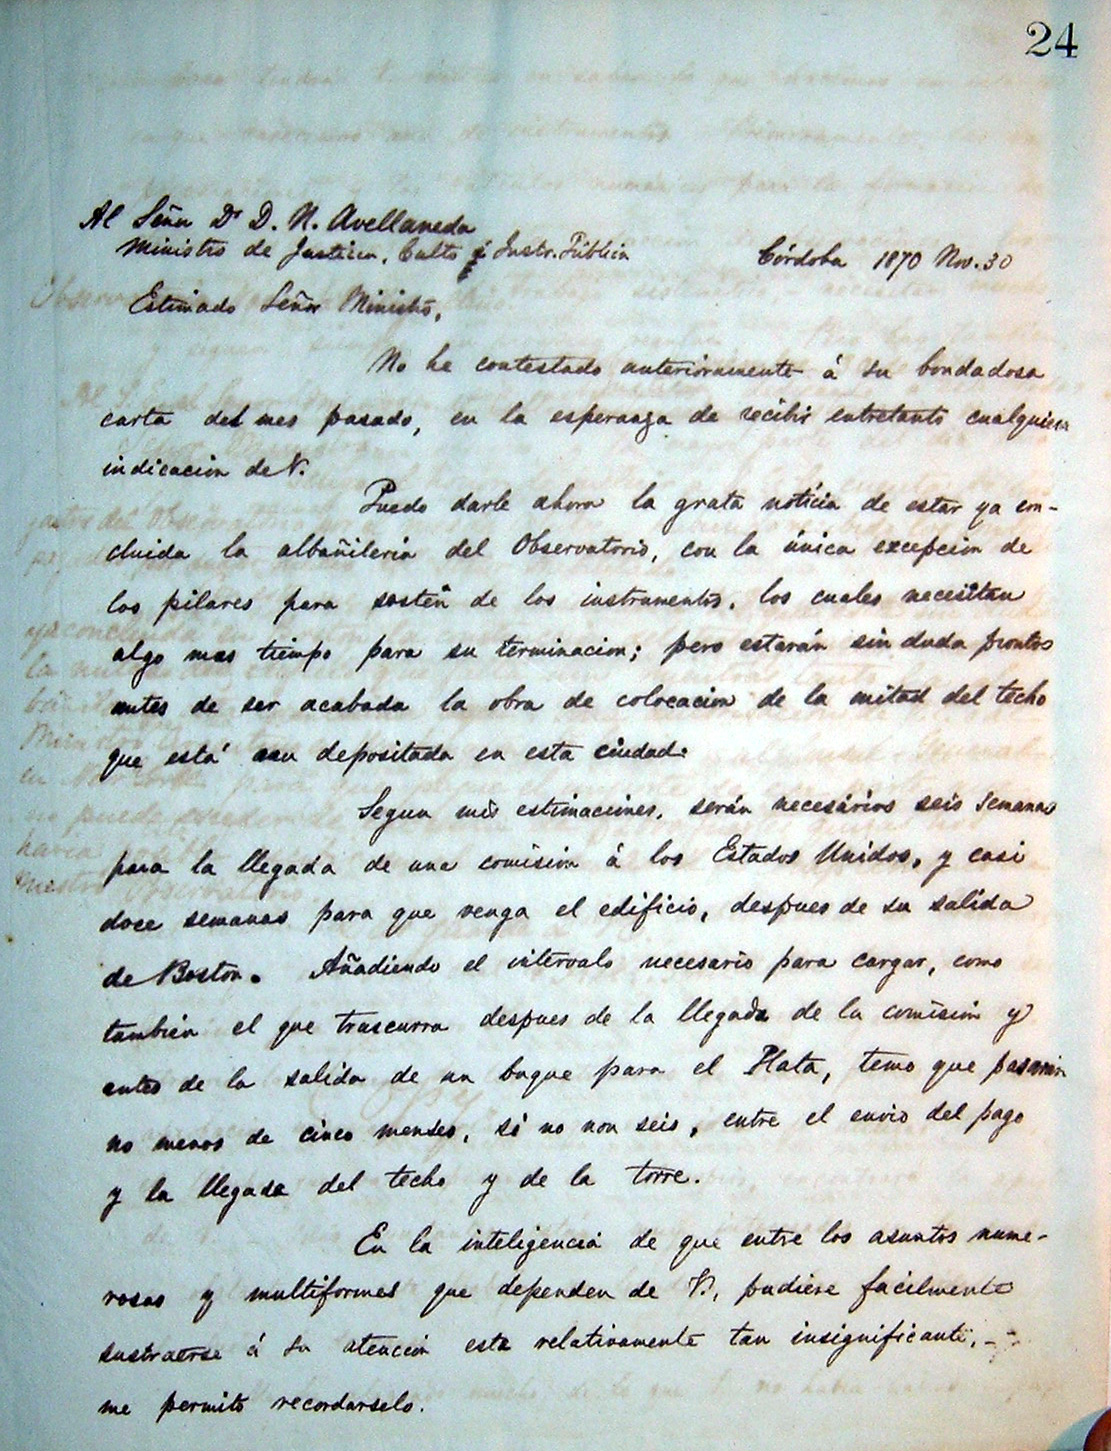 24
Al Señor Dr D. N. Avellaneda
Ministro de Justicia, Culto é Instr. Pública
Córdoba 1870 Nov. 30
Estimado Señor Ministro,
No he contestado anteriormente á su bondadosa
carta del mes pasado, en la esperanza de recibir entretanto cualquiera
indicacion de V.
Puedo darle ahora la grata notícia de estar ya con-
cluida la albañileria del Observatorio, con la única excepcion de
los pilares para sosten de los instrumentos, los cuales necesitan
algo mas tiempo para su terminacion; pero estarán sin duda prontos
antes de ser acabada la obra de colocacion de la mitad del techo
que está aun depositada en esta ciudad.
Segun mis estimaciones, serán necesários seis semanas
para la llegada de una comision á los Estados Unidos, y casi
doce semanas para que venga el edificio, despues de su salida
de Boston. Añadiendo el intervalo necesario para cargar, como
tambien el que trascurra despues de la llegada de la comision y
antes de la salida de un buque para el Plata, temo que pasarán
no menos de cinco menses, si no non seis, entre el envio del pago
y la llegada del techo y de la torre.
En la inteligencia de que entre los asuntos nume-
rosos y multiformes que dependen de V., pudiere facilmente
sustraerse á su atencion esta relativamente tan insignificante, -
me permito recordarselo.